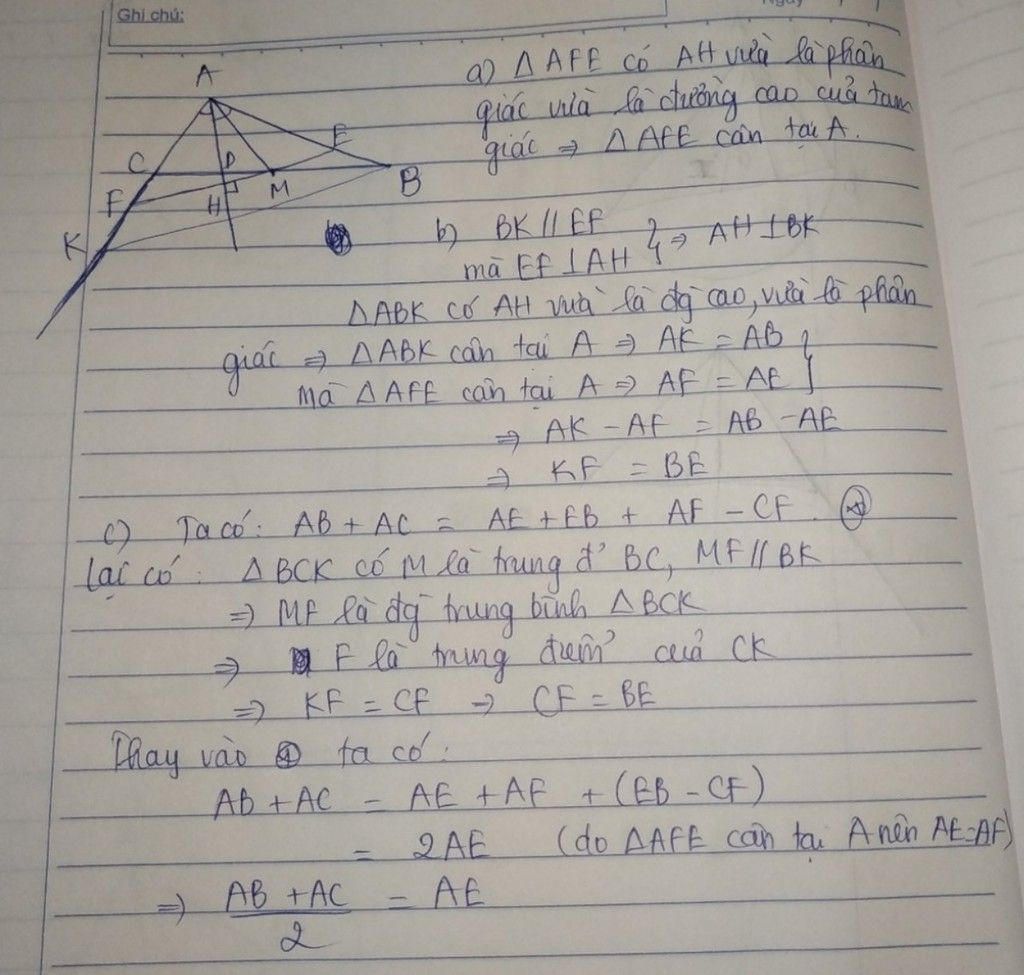 Ghi chú:
A
E
C
D
F
M
B
H
K
a) Δ AFE có AH vừa là phân
giác vừa là đường cao của tam
giác ⇒ Δ AFE cân tại A.
b) BK // EF
mà EF ⊥ AH } ⇒ AH ⊥ BK
ΔABK có AH vừa là đg cao, vừa là phân
giác ⇒ ΔABK cân tại A ⇒ AK = AB
mà ΔAFE cân tại A ⇒ AF = AE }
⇒ AK - AF = AB - AE
⇒ KF = BE
c) Ta có: AB + AC = AE + EB + AF - CF. (*)
Lại có: Δ BCK có M là trung đ' BC, MF // BK
⇒ MF là đg trung bình ΔBCK
⇒ F là trung điểm của CK
⇒ KF = CF → CF = BE
Thay vào ta có:
AB + AC = AE + AF + (EB - CF)
= 2AE (do ΔAFE cân tại A nên AE = AF)
⇒ AB + AC / 2 = AE